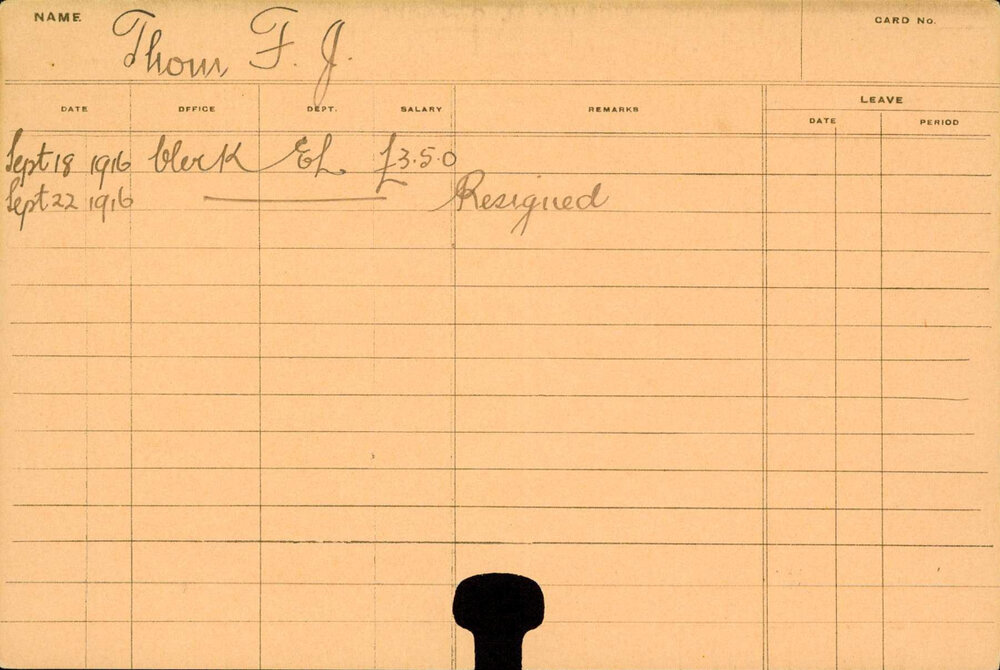 NAME Thom F. J. CARD No.
DATE OFFICE DEPT. SALARY REMARKS LEAVE
DATE PERIOD
Sept 18 1916 Clerk EL £3.5.0
Sept 22 1916 Resigned